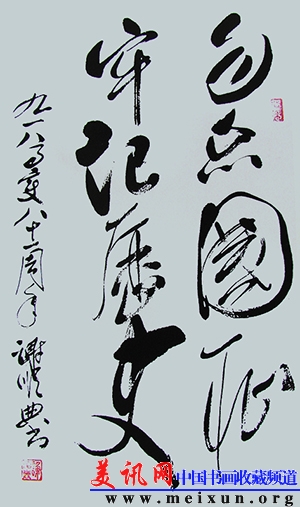 勿忘國耻
牢记歷史
九一八事变八十一周年 谢顺典书
美讯网 中国书画收藏频道
www.meixun.org